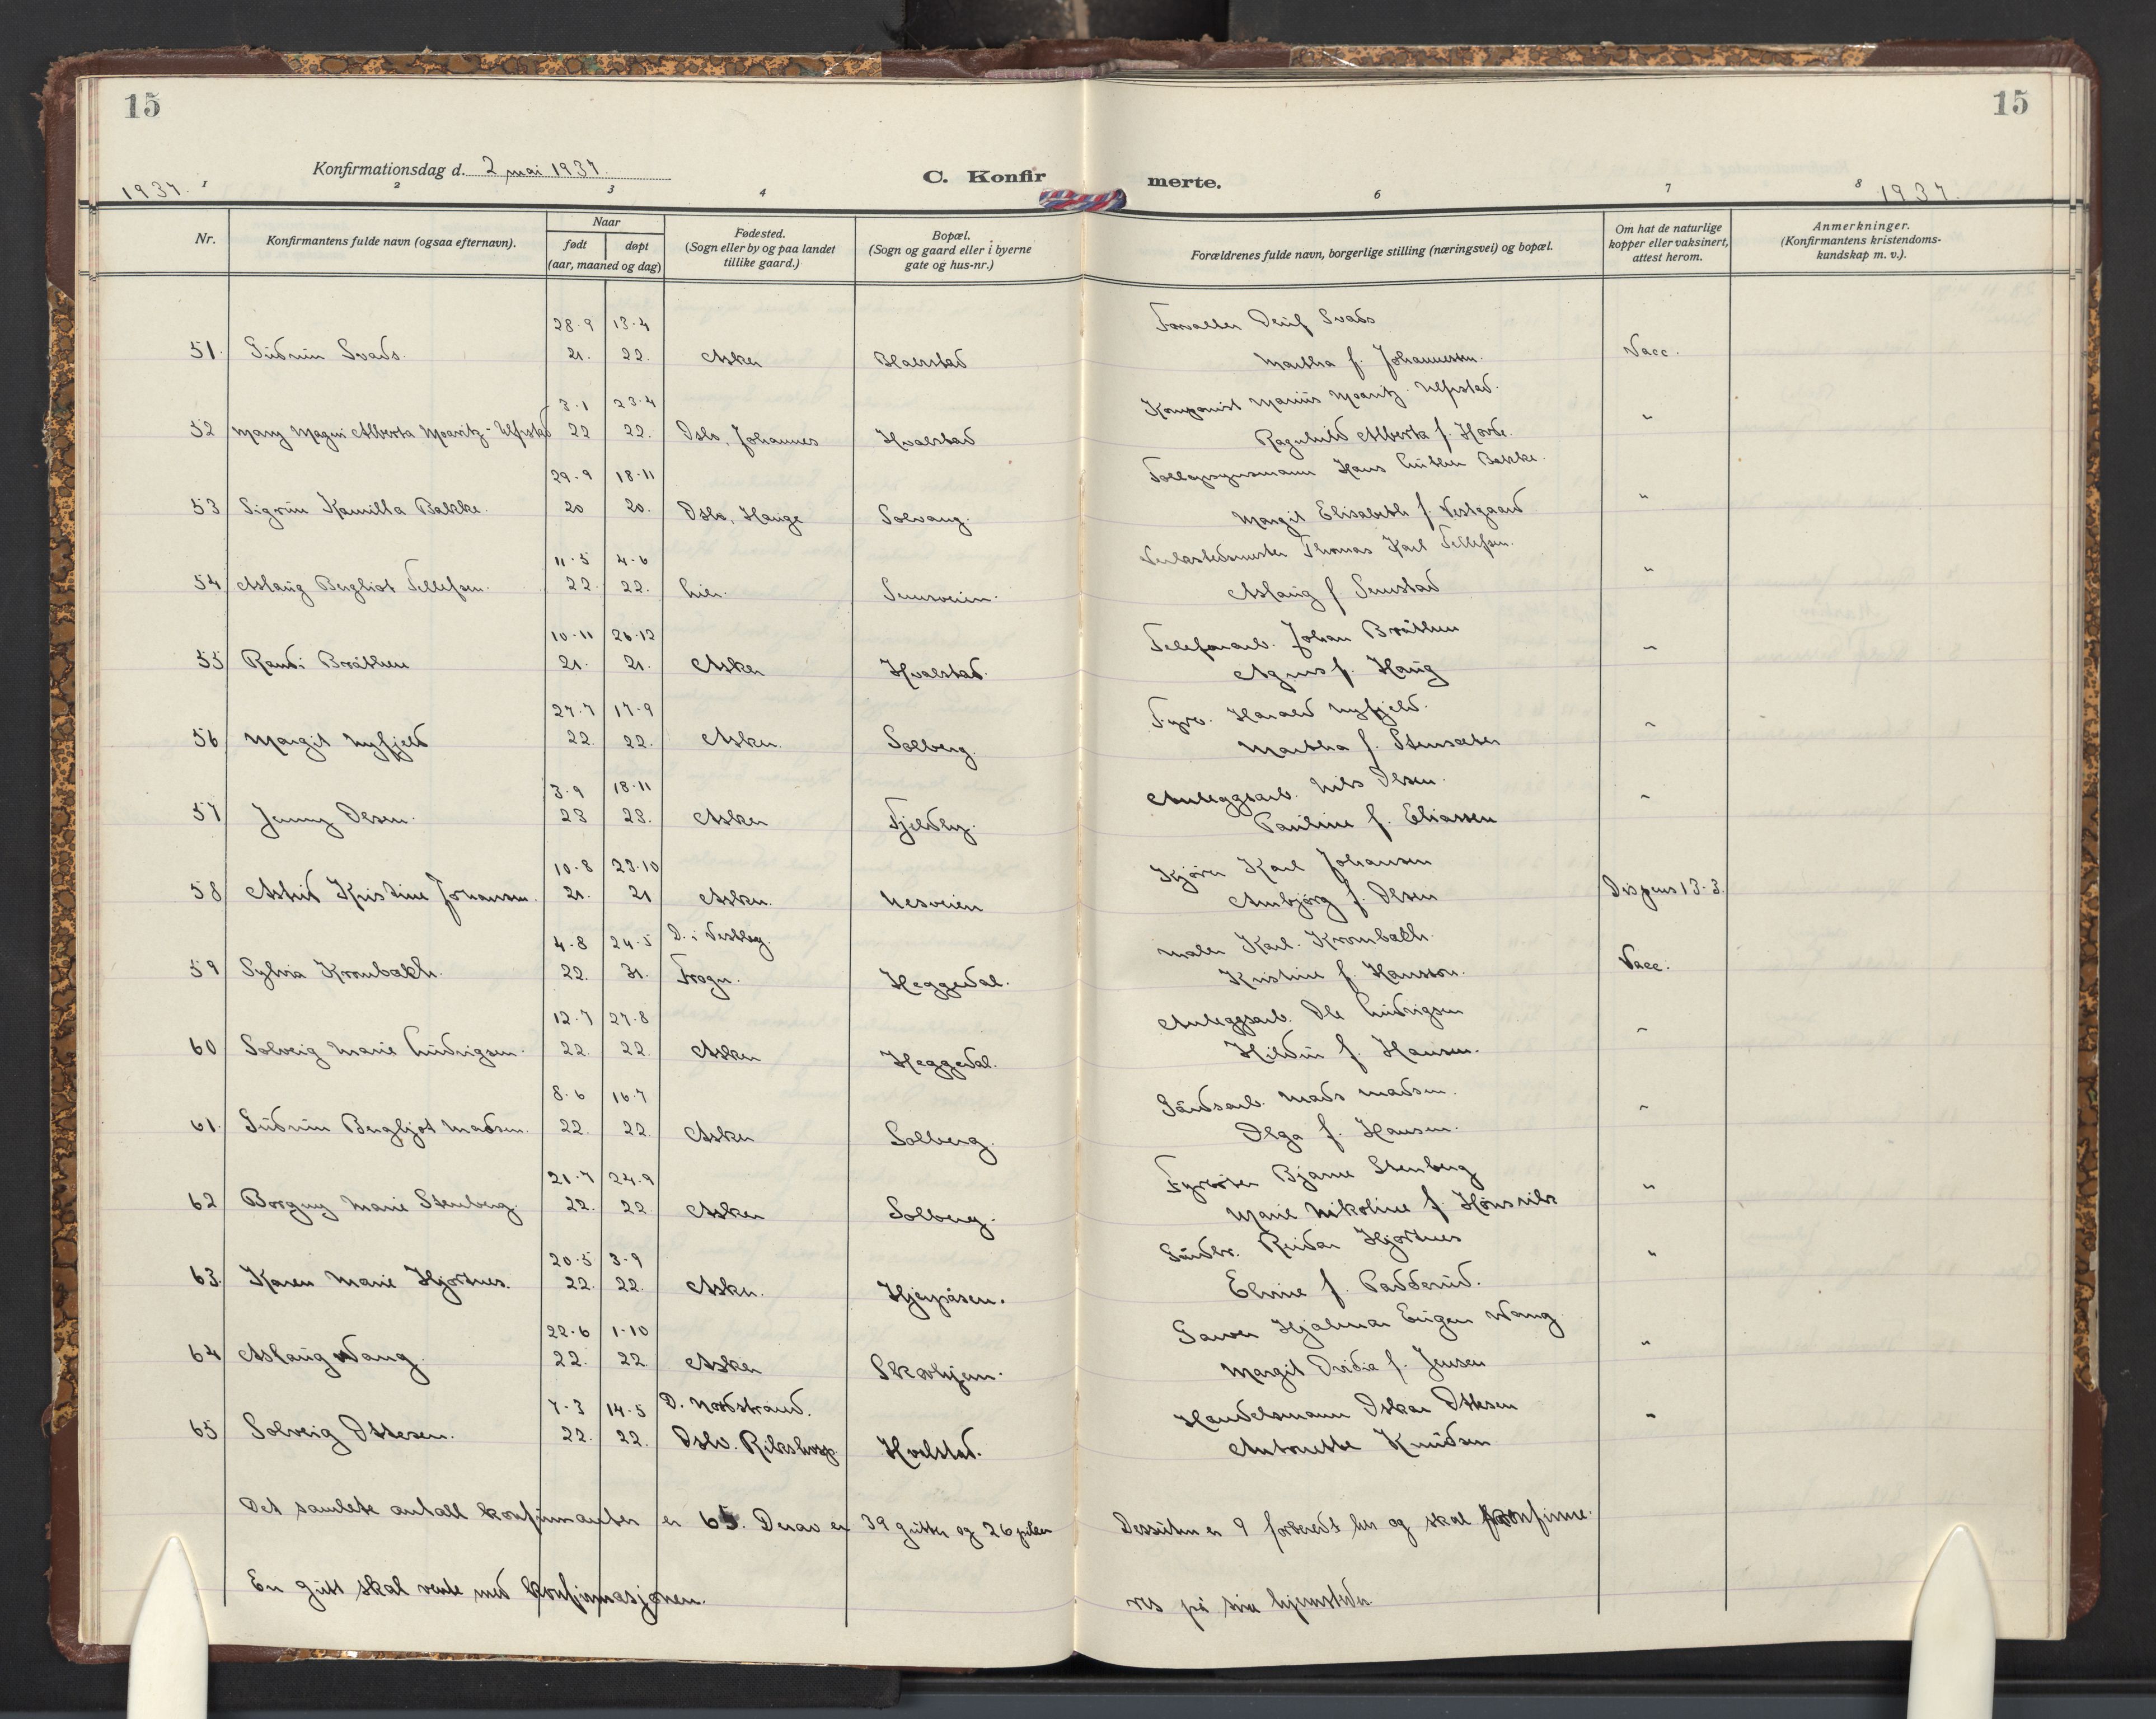 15
15
Konfirmationsdag d. 2 mai 1937.
C. Konfir
merte.
1937. 1 2 3 4 6 7 8 1937.
Nr.
Konfirmantens fulde navn (ogsaa efternavn).
Naar
født døpt
(aar, maaned og dag)
Fødested.
(Sogn eller by og paa landet
tillike gaard.)
Bopæl.
(Sogn og gaard eller i byerne
gate og hus-nr.)
Forældrenes fulde navn, borgerlige stilling (næringsvei) og bopæl.
Om hat de naturlige
kopper eller vaksinert,
attest herom.
Anmerkninger.
(Konfirmantens kristendoms-
kundskap m. v.).
28-9 13-4 Forvalter Svads
51. Gudrun Svads. 21. 22. Asker Hvalstad Martha f. Johannessen. Vacc.
3-1 23-4 Komponist Marius Moaritz-Ulfrstad.
52 Mary Magni Alberta Moaritz-Ulfrstad 22 22. Oslo, Johannes Hvalstad Ragnhild Alberta f. Horde. "
29-9 18-11 Tollopsynsmann Hans Luther Bakke.
53 Sigrun Kamilla Bakke. 20 20. Oslo, Hauge Solvang. Margit Elisabeth f. Vestgaard "
11-5 4-6 Verkstedsmester Thomas Karl Tellefsen.
54 Aslaug Bergliot Tellefsen. 22. 22. Lier. Semsveien. Aslaug f Semstad "
10-11 26-12 Telefonarb. Johan Bråthen
55 Randi Bråthen 21. 21. Asker Hvalstad. Agnes f. Haug "
27-7 17-9 Fyrb. Harald Nyfjeld.
56 Margit Nyfjeld 22. 22. Asker. Solberg. Martha f. Stensæter "
3-9 18-11 Anleggsarb. Nils Olsen.
57 Jenny Olsen. 23 23. Asker Fjeldby. Pauline f. Eliassen "
10-8 23-10 Kjører Karl Johansen
58 Astrid Kristine Johansen. 21. 21 Asker. Nesveien Arnbjørg f. Olsen Dispens 13-3.
4-8 24-5 D. i Vestby. Maler Karl. Krombakh.
59 Sylvia Krombakh. 22. 31. Frogn. Heggedal. Kristine f. Hansson. Vacc.
12-7 27-8 Anleggsarb. Ole Ludvigsen
60 Solveig Marie Ludvigsen. 22. 22. Asker Heggedal. Hildur f. Hansen. "
8-6 16-7 Gårdsarb. Mads Madsen.
61. Gudrun Bergljot Madsen. 22. 22. Asker Solberg. Olga f. Hansen. "
21-7 24-9 Fyrbøter Bjarne Stenberg
62 Borgny Marie Stenberg. 22. 22 Asker Solberg. Marie Nikoline f. Hønsvik "
20-5 3-9 Gårdbr. Reidar Hjortnes
63. Karen Marie Hjortnes. 22. 22. Asker. Hjerpåsen. Elvine f. Padderud. "
22-6 1-10 Garver Hjalmar Eugen Wang
64 Aslaug Wang. 22. 22 Asker Skovhjem. Margit Ovidia f. Jensen "
7-3 14-5 D. Nordstrand. Handelsmann Oskar Ottesen
65 Solveig Ottesen. 22. 22. Oslo. Rikshosp. Hvalstad. Antonette Knudsen "
Det samlete antall konfirmanter er 65. Derav er 39 gutter og 26 piker Dessuten er 9 forberedt her og skal konfirme-
En gutt skal vente med konfirmasjonen. res på sine hjemsteder.